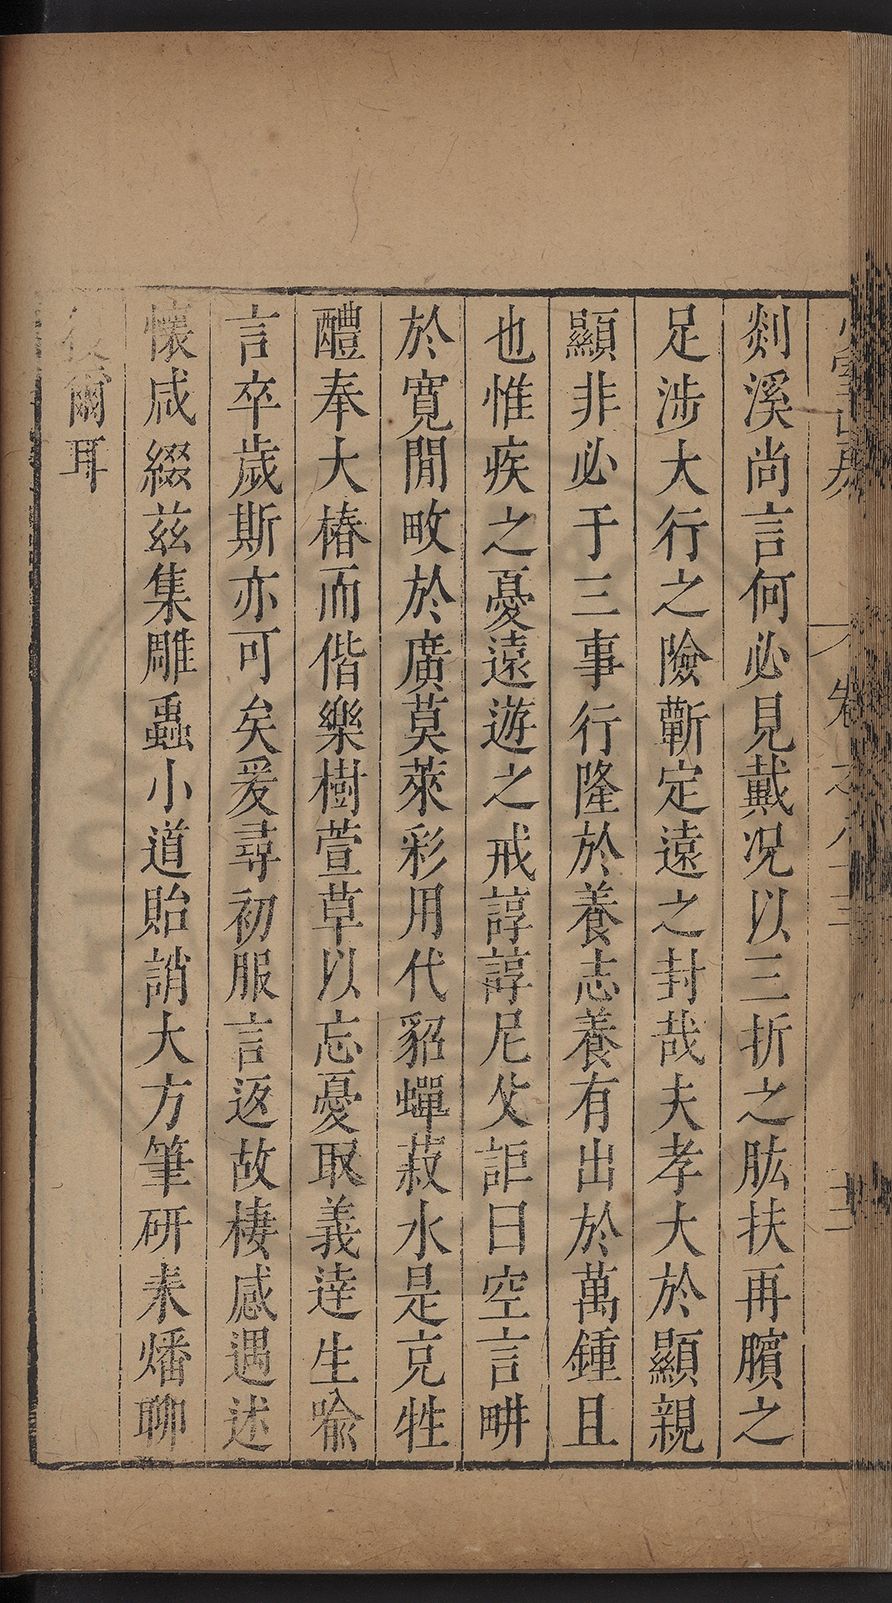 卷之八十三
十二
剡溪尚言何必見戴况以三折之肱扶再臏之
足涉大行之險蘄定遠之封哉夫孝大於顯親
顯非必于三事行隆於養志養有出於萬鍾且
也惟疾之憂遠遊之戒諄諄尼父詎曰空言畊
於寬閒畋於廣莫萊彩用代貂蟬菽水是克牲
醴奉大椿而偕樂樹萱草以忘憂取義達生喩
言卒歲斯亦可矣爰尋初服言返故棲感遇述
懷咸綴兹集雕蟲小道貽誚大方筆研未燔聊
復爾耳